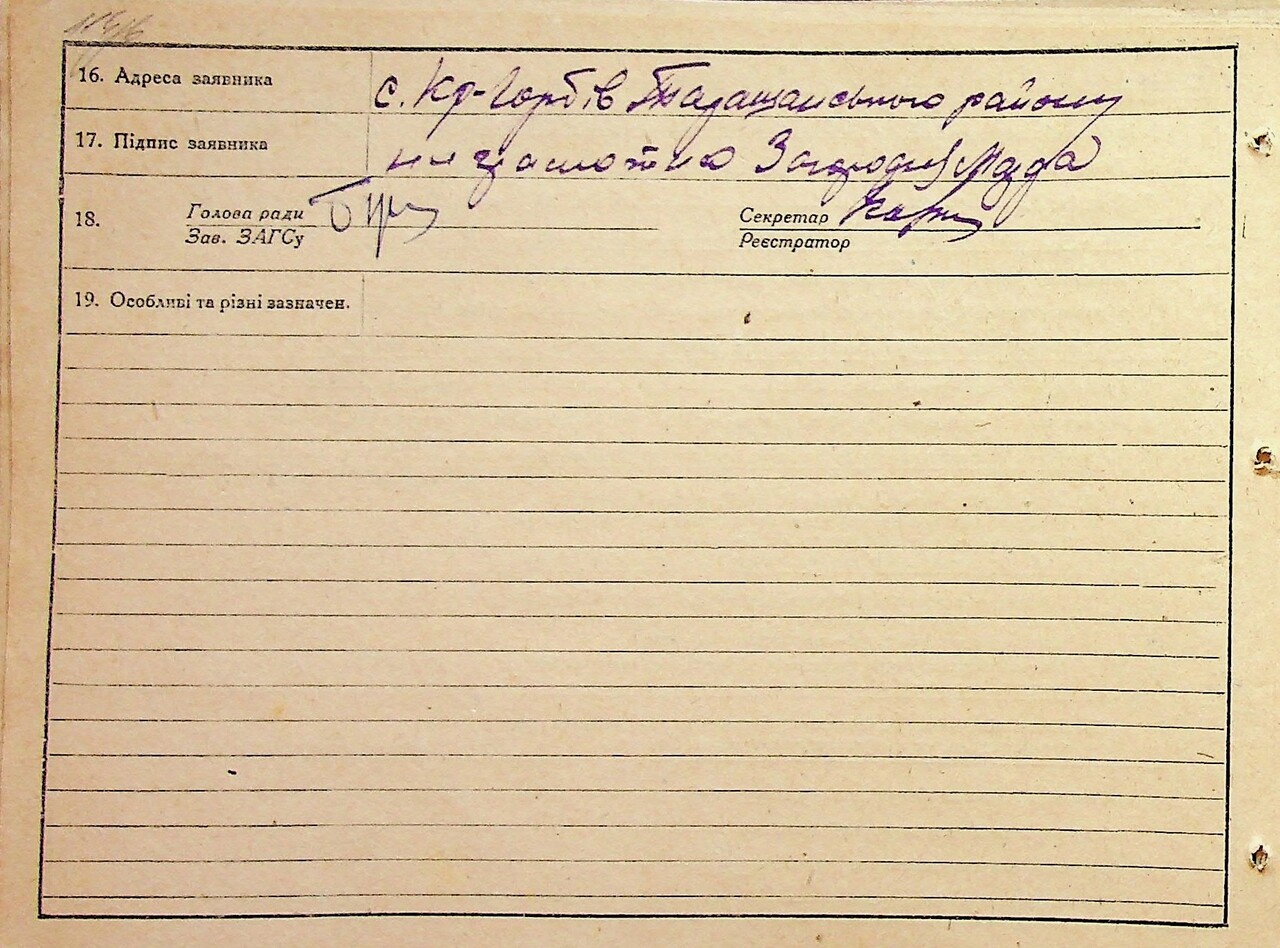 16. Адреса заявника с. Кр-Горбів Таращанського району
17. Підпис заявника неграмотна
18. Голова ради Секретар
Зав. ЗАГСу Реєстратор
19. Особливі та різні зазначен.